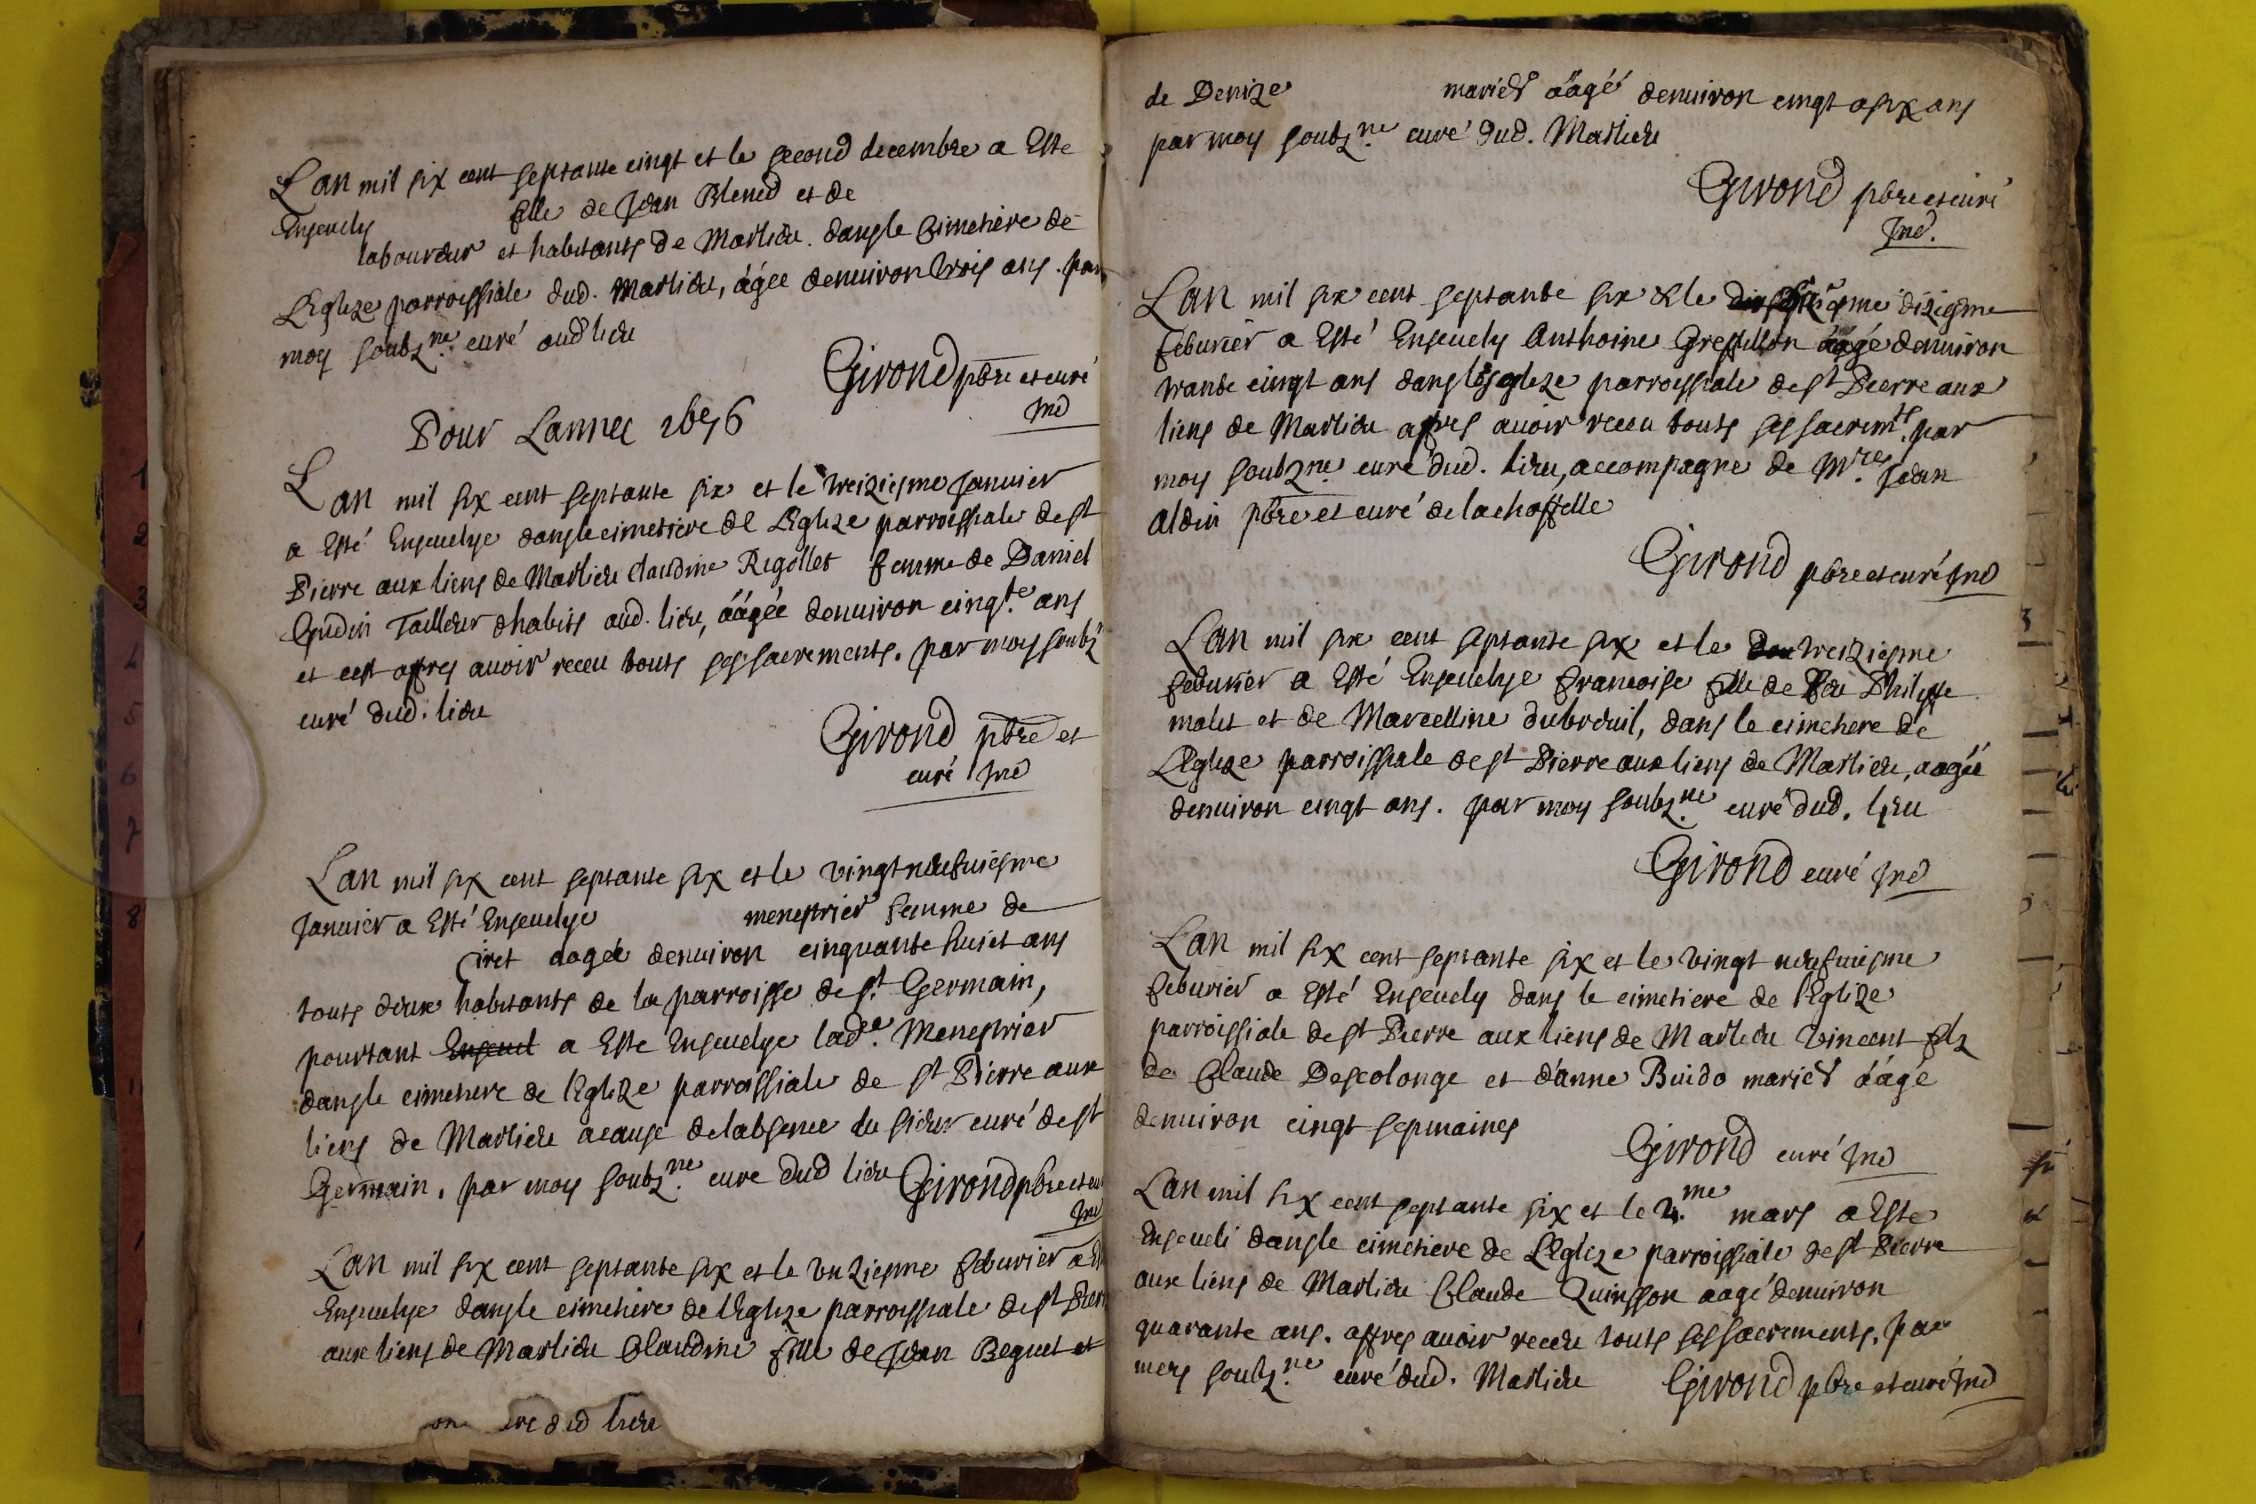 Lan mil six cent septante cingt et le second decembre a Este
Enseuely fille de Jean Blened et de
laboureur et habitants de Marlieu. dansle Cimetiere de
LEglize parroissiale dud. Marlieu, áágee denuiron trois ans. par
moy soubz.ne curé aud lieu
Girond pbre et curé
Ind
Pour Lannee 1676
Lan mil six cent septante six et le treiziesme Januier
a Esté Enseuelye dansle cimetiere de LEglize parroissiale de st
Pierre aux liens de Marlieu claudine Rigollet femme de Daniel
Gudin Tailleur dhabits aud. lieu, áágée denuiron cinqte. ans
et cest apres auoir receu touts ses sacrements. par moy soubz
curé dud. lieu
Girond pbre et
curé Ind
Lan mil six cent septante six et le vingtneufuiesme
Januier a Esté Enseuelye menestrier femme de
Ciret áagée denuiron cinquante huict ans
touts deux habitants de la parroisse de st. Germain,
pourtant Enseuel a Este Enseuelye lad.e Menestrier
dansle cimetiere de lEglize parroissiale de st Pierre aux
liens de Marlieu a cause de labsence du sieur curé de st
Germain. par moy soubz.ne cure dud lieu Girond pbre et cu
Ind
Lan mil six cent septante six et le vnziesme feburier a E
Enseuelye dansle cimetiere de lEglize parroissiale de st Pierr
aux liens de Marlieu Claudine fille de Jean Beguet et
dud lieu
de Denize mariés áágé denuiron cingt a six ans
par moy soubz.ne curé dud. Marlieu
Girond pbre et curé
Ind.
Lan mil six cent septante six & le diziesme
feburier a Esté Enseuely Anthoine Gresillon áágé denuiron
trante cingt ans dans lEsglize parroissiale de st Pierre aux
liens de Marlieu apres auoir receu touts ses sacremts. par
moy soubzne curé dud. lieu, accompagne de Mre. Jean
aldin pbre et curé de lachapelle
Girond pbre et curé Ind
Lan mil six cent septante six et le dou treiziesme
feburier a Esté Enseuelye francoise fille de feu Philippe
malet et de Marcelline dubreuil, dans le cimetiere de
LEglize parroissiale de st Pierre aux liens de Marlieu, aagée
denuiron cingt ans. par moy soubz.ne curé dud. lieu
Girond curé Ind
Lan mil six cent septante six et le vingt neufuiesme
feburier a Esté Enseuely dans le cimetiere de lEglize
parroissiale de st Pierre aux liens de Marlieu Vincent filz
de Claude Descolonge et danne Buido mariés áágé
denuiron cingt sepmaines
Girond curé Ind
Lan mil six cent septante six et le 4.me mars a Este
Enseueli dansle cimetiere de LEglize parroissiale de st Pierre
aux liens de Marlieu Claude Quinsson aagé denuiron
quarante ans. apres auoir receu touts ses sacrements. par
moy soubz.ne curé dud. Marlieu Girond pbre et curé Ind
1
2
3
4
5
6
7
8